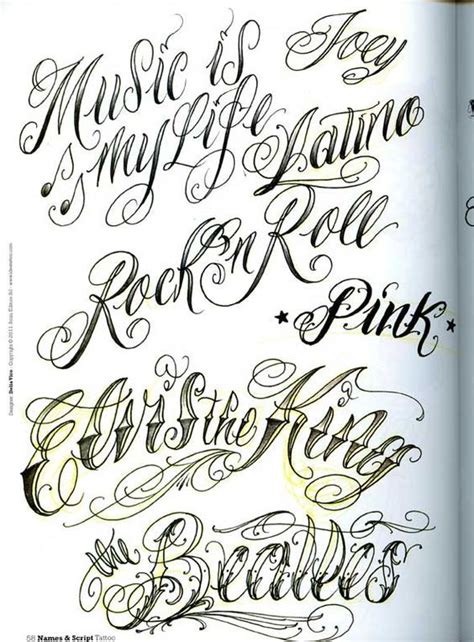 Music is
Joey
my Life
Latino
Rock'n Roll
Pink
Elvis the King
the Beatles
Designer: Copyright © 2011
58 Names & Script Tattoo